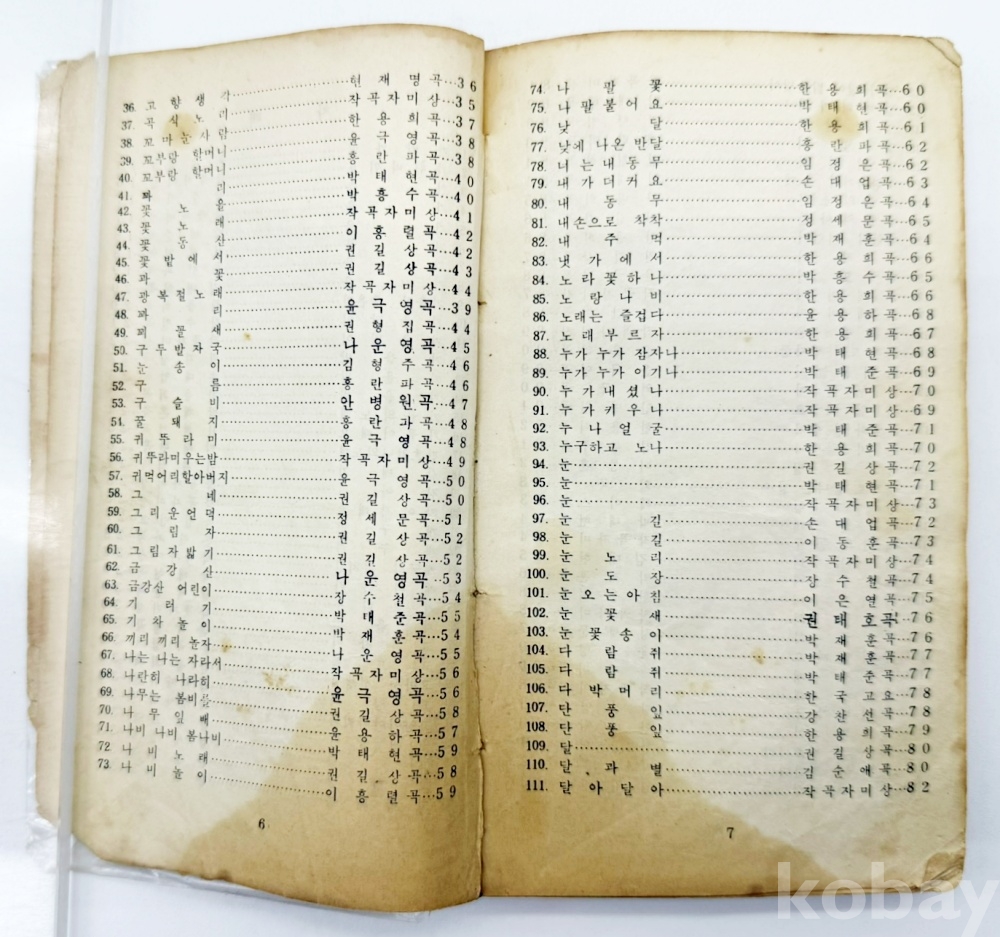 36. 고향생각 현재명곡…36
37. 곡식노리 작곡자미상…35
38. 꼬마눈사람 한용희곡…37
39. 꼬부랑 할머니 윤극영곡…38
40. 꼬부랑 할머니 홍란파곡…38
41. 리 박태현곡…40
42. 꽃노을 박흥수곡…40
43. 꽃노래 작곡자미상…41
44. 꽃동산 이흥렬곡…42
45. 꽃밭에서 권길상곡…42
46. 과꽃 권길상곡…43
47. 광복절노래 작곡자미상…44
48. 리 윤극영곡…39
49. 새 권형집곡…44
50. 구두발자국 나운영곡…45
51. 눈송이 김형주곡…46
52. 구름 홍란파곡…46
53. 구슬비 안병원곡…47
54. 꿀돼지 홍란파곡…48
55. 귀뚜라미 윤극영곡…48
56. 귀뚜라미우는밤 작곡자미상…49
57. 귀먹어리할아버지 윤극영곡…50
58. 그네 권길상곡…50
59. 그리운언덕 정세문곡…51
60. 그림자 권길상곡…52
61. 그림자밟기 권길상곡…52
62. 금강산 나운영곡…53
63. 금강산 어린이 장수철곡…54
64. 기러기 박태준곡…55
65. 기차놀이 박재훈곡…54
66. 끼리 끼리 놀자 나운영곡…55
67. 나는 나는 자라서 작곡자미상…56
68. 나란히 나라히 윤극영곡…56
69. 나무는 봄비를 권길상곡…58
70. 나무잎배 윤용하곡…57
71. 나비 나비 봄나비 박태현곡…59
72. 나비노래 권길상곡…58
73. 나비놀이 이흥렬곡…59
6
74. 나팔꽃 한용희곡…60
75. 나팔불어요 박태현곡…60
76. 낮달 한용희곡…61
77. 낮에 나온 반달 홍란파곡…62
78. 너는 내동무 임정은곡…62
79. 내가더커요 손대업곡…63
80. 내동무 임정은곡…64
81. 내손으로 착착 정세문곡…65
82. 내주먹 박재훈곡…64
83. 냇가에서 한용희곡…66
84. 노라꽃하나 박흥수곡…65
85. 노랑나비 한용희곡…66
86. 노래는 즐겁다 윤용하곡…68
87. 노래부르자 한용희곡…67
88. 누가 누가 잠자나 박태현곡…68
89. 누가 누가 이기나 박태준곡…69
90. 누가내셨나 작곡자미상…70
91. 누가키우나 작곡자미상…69
92. 누나얼굴 박태준곡…71
93. 누구하고 노나 한용희곡…70
94. 눈 권길상곡…72
95. 눈 박태현곡…71
96. 눈 작곡자미상…73
97. 눈길 손대업곡…72
98. 눈길 이동훈곡…73
99. 눈노리 작곡자미상…74
100. 눈도장 장수철곡…74
101. 눈오는아침 이은열곡…75
102. 눈꽃새 권태호곡…76
103. 눈꽃송이 박재훈곡…76
104. 다람쥐 박재훈곡…77
105. 다람쥐 박태준곡…77
106. 다박머리 한국고요…78
107. 단풍잎 강찬선곡…78
108. 단풍잎 한용희곡…79
109. 달 권길상곡…80
110. 달과별 김순애곡…80
111. 달아달아 작곡자미상…82
7
kobay